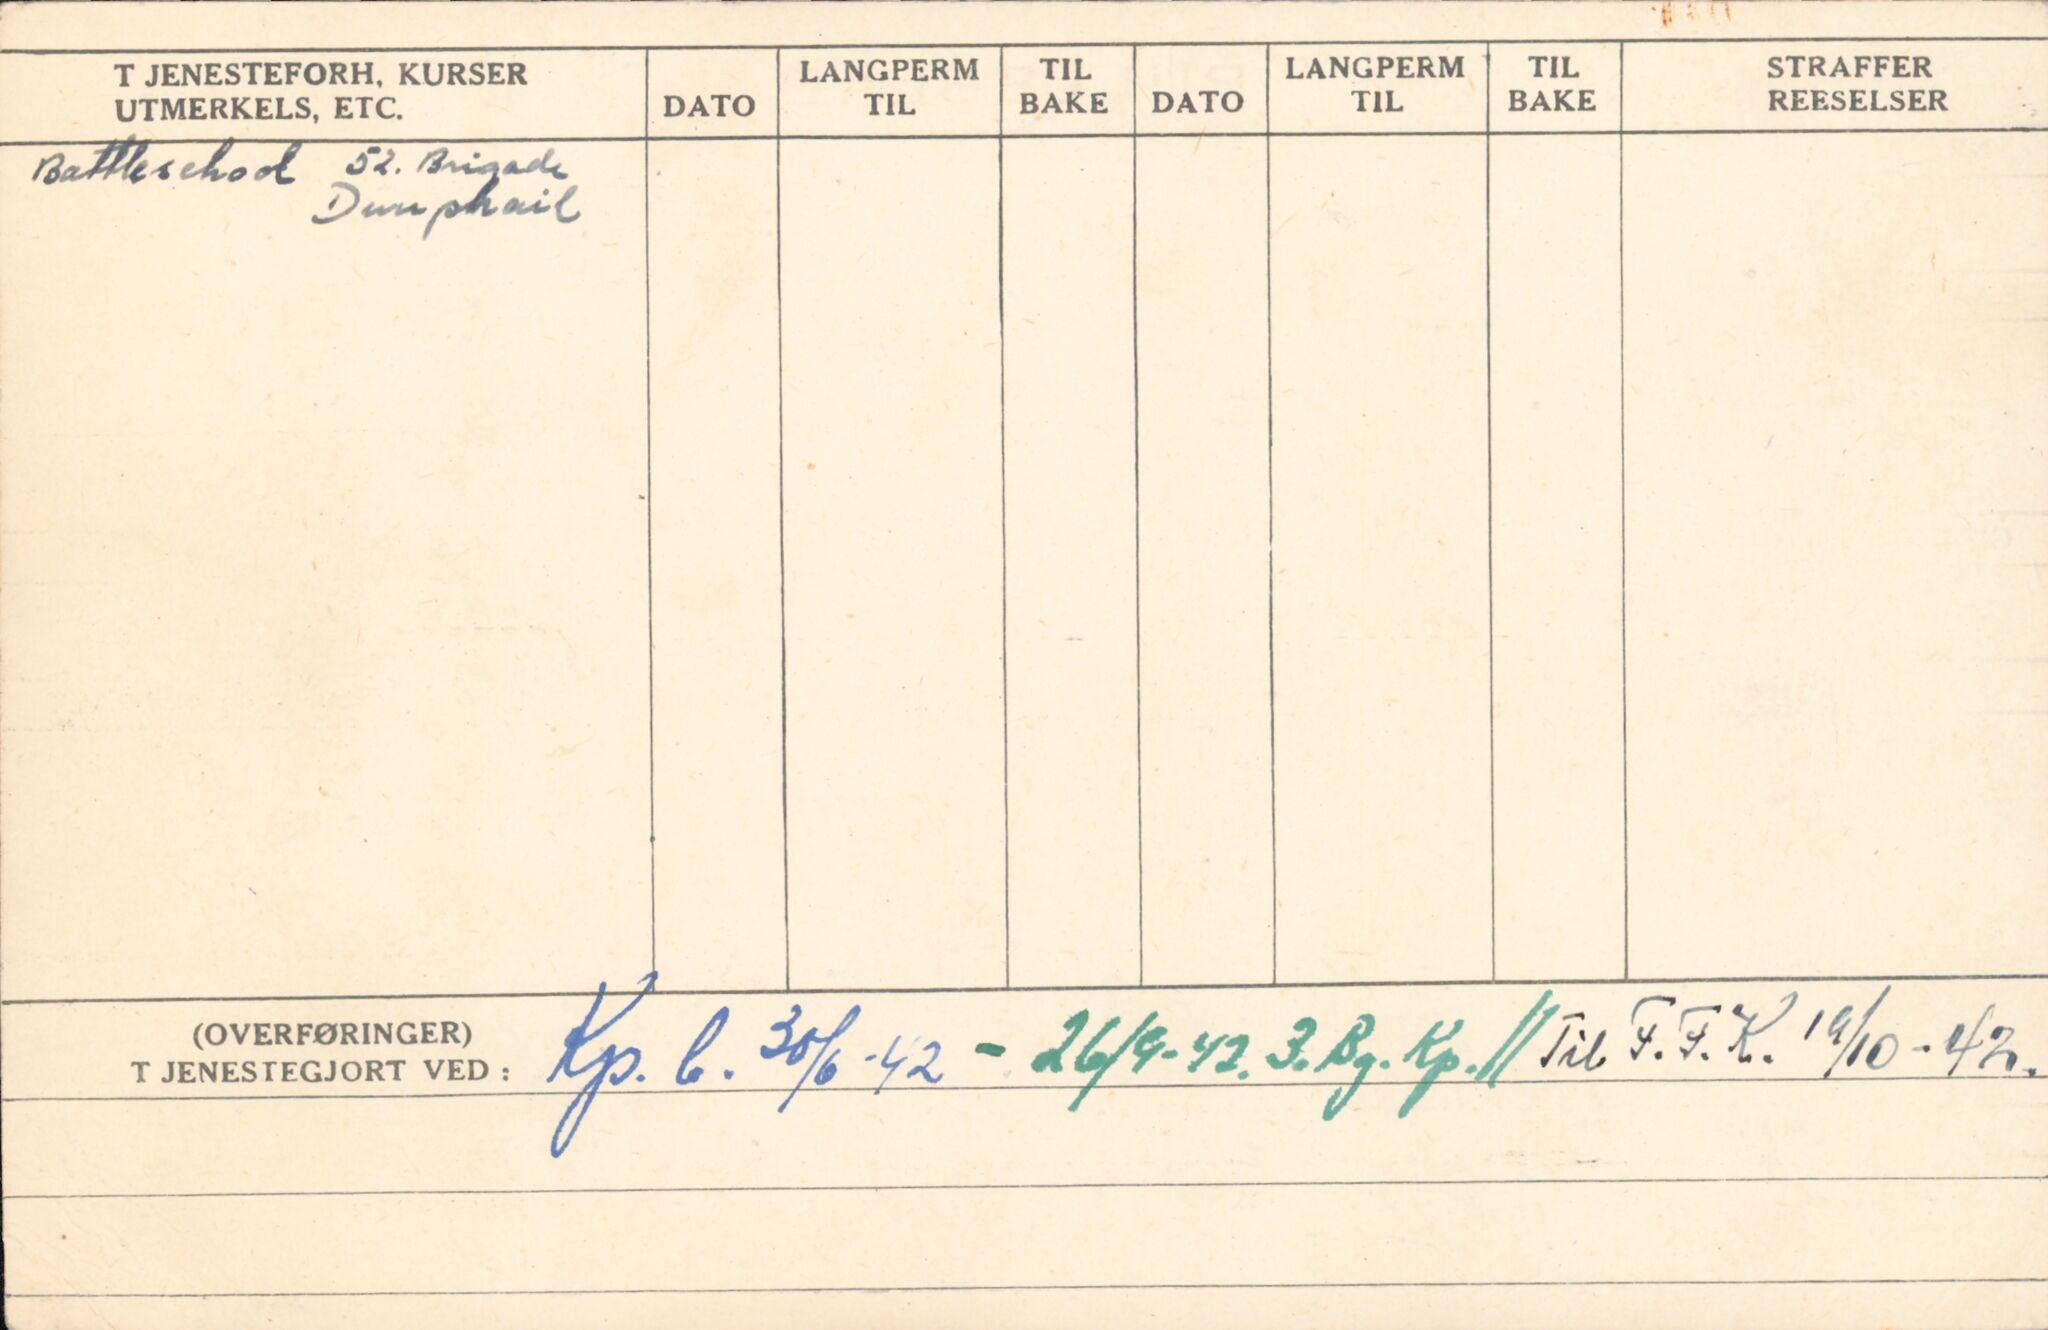 TJENESTEFORH, KURSER
UTMERKELS, ETC.
DATO
LANGPERM
TIL
TIL
BAKE
DATO
LANGPERM
TIL
TIL
BAKE
STRAFFER
REESELSER
Battleschool 52. Brigade
Dunphail
(OVERFØRINGER)
TJENESTEGJORT VED: Kp. 6. 30/6-42 - 26/9-42. 3. Bg. Kp. // Til F. F. K. 19/10-42.